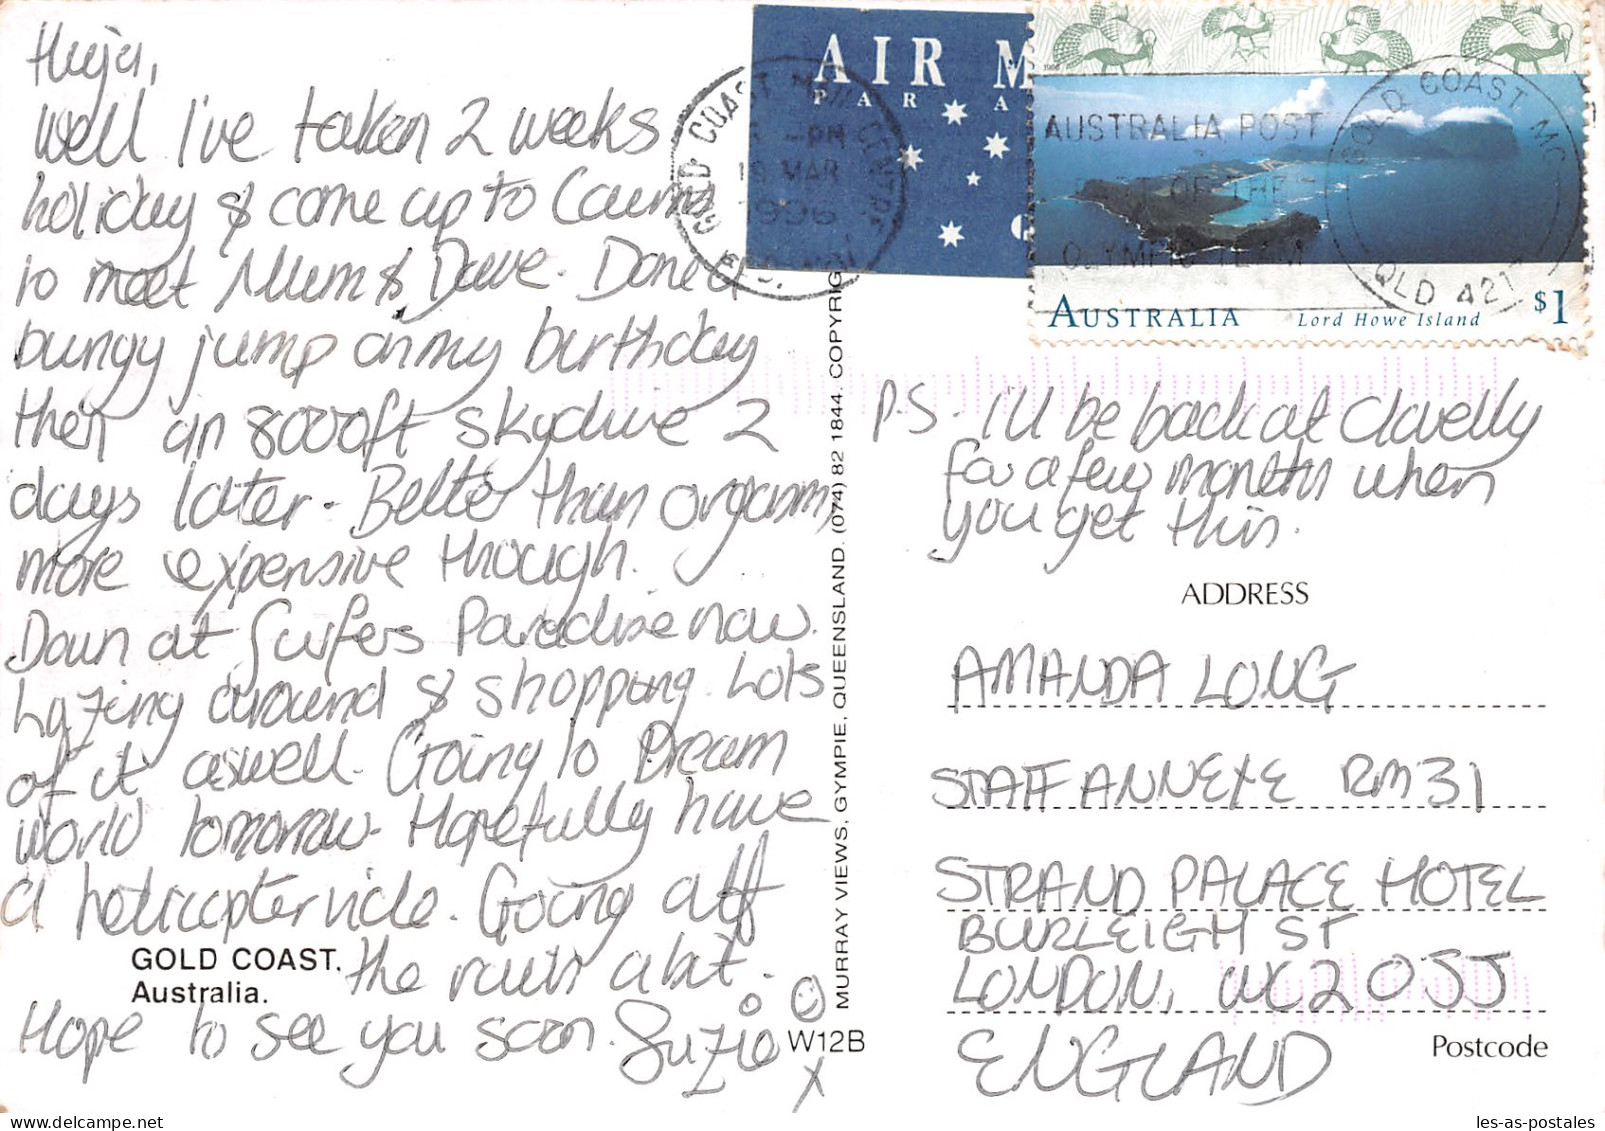 Huja,
Well I've taken 2 weeks
holiday & come up to Cairns
to meet Mum & Dave. Done a
bungy jump on my birthday
then an 8000ft skydive 2
days later. Better than orgasm,
more expensive though.
Down at Surfers Paradise now.
Lazing around & shopping. Lots
of it aswell. Going to Dream
World tomorrow. Hopefully have
a helicopter ride. Going off
the rails a bit.
Hope to see you soon. Suzie
X
GOLD COAST.
Australia.
W12B
MURRAY VIEWS, GYMPIE, QUEENSLAND. (074) 82 1844. COPYRIG
AIR M
PAR A
GOLD COAST MAIL CENTRE
PM
19 MAR
1996
1996
AUSTRALIA POST
PART OF THE
OLYMPIC TEAM
GOLD COAST MC
QLD 421
AUSTRALIA Lord Howe Island $1
P.S. I'll be back at Clovelly
for a few months when
you get this.
ADDRESS
AMANDA LONG
STAFF ANNEXE RM 31
STRAND PALACE HOTEL
BURLEIGH ST
LONDON, WC2 0JJ
ENGLAND
Postcode
les-as-postales.com